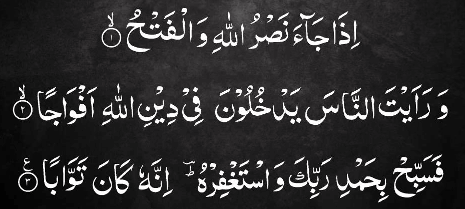 اِذَا جَآءَ نَصْرُ اللّٰهِ وَالْفَتْحُ ۙ﴿۱﴾
وَ رَاَیْتَ النَّاسَ یَدْخُلُوْنَ فِیْ دِیْنِ اللّٰهِ اَفْوَاجًا ۙ﴿۲﴾
فَسَبِّحْ بِحَمْدِ رَبِّكَ وَ اسْتَغْفِرْهُ ؕ اِنَّهٗ كَانَ تَوَّابًا ﴿۳﴾ ع